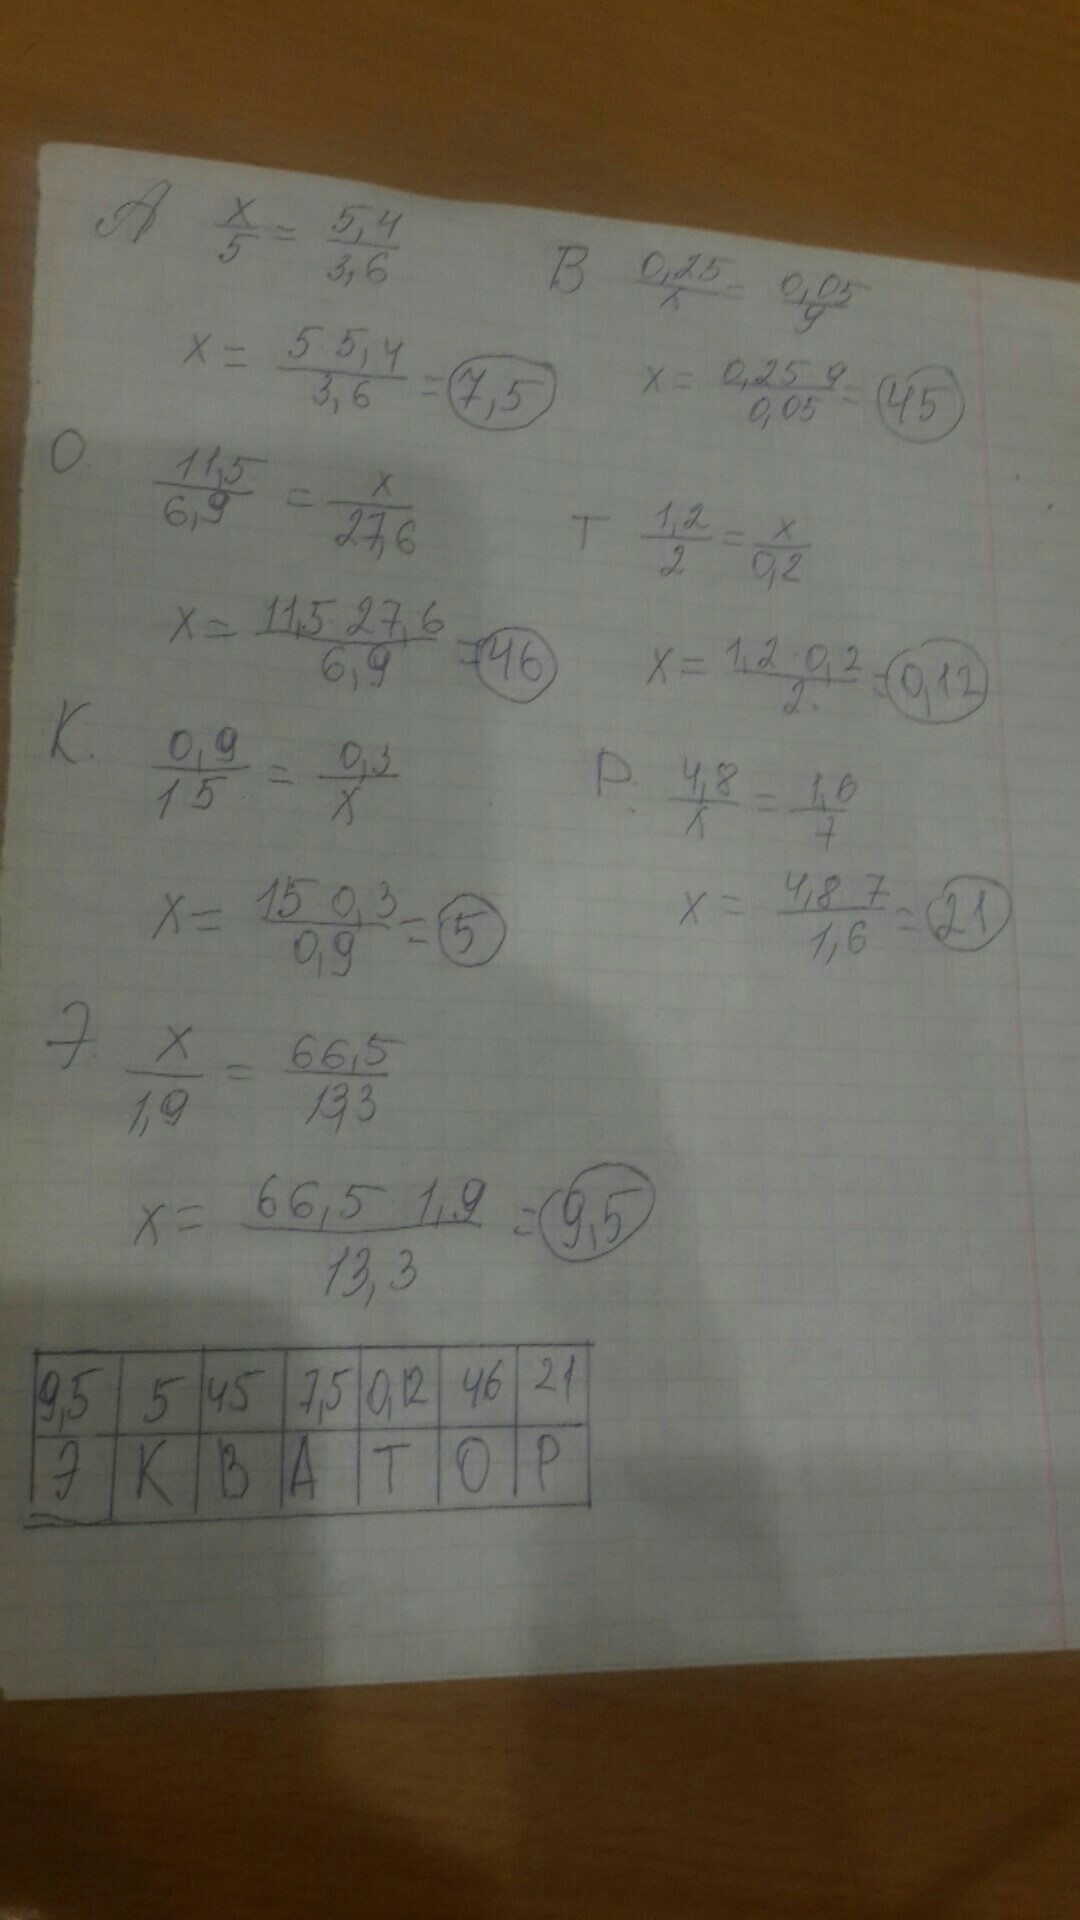 А x/5 = 5,4/3,6
x = 5 5,4/3,6 = 7,5
В 0,25/x = 0,05/9
x = 0,25 9/0,05 = 45
О. 11,5/6,9 = x/27,6
x = 11,5 27,6/6,9 = 46
Т 1,2/2 = x/0,2
x = 1,2 · 0,2/2. = 0,12
К. 0,9/15 = 0,3/x
x = 15 0,3/0,9 = 5
Р. 4,8/x = 1,6/7
x = 4,8 7/1,6 = 21
Э. x/1,9 = 66,5/13,3
x = 66,5 · 1,9/13,3 = 9,5
9,5 5 45 7,5 0,12 46 21
Э К В А Т О Р